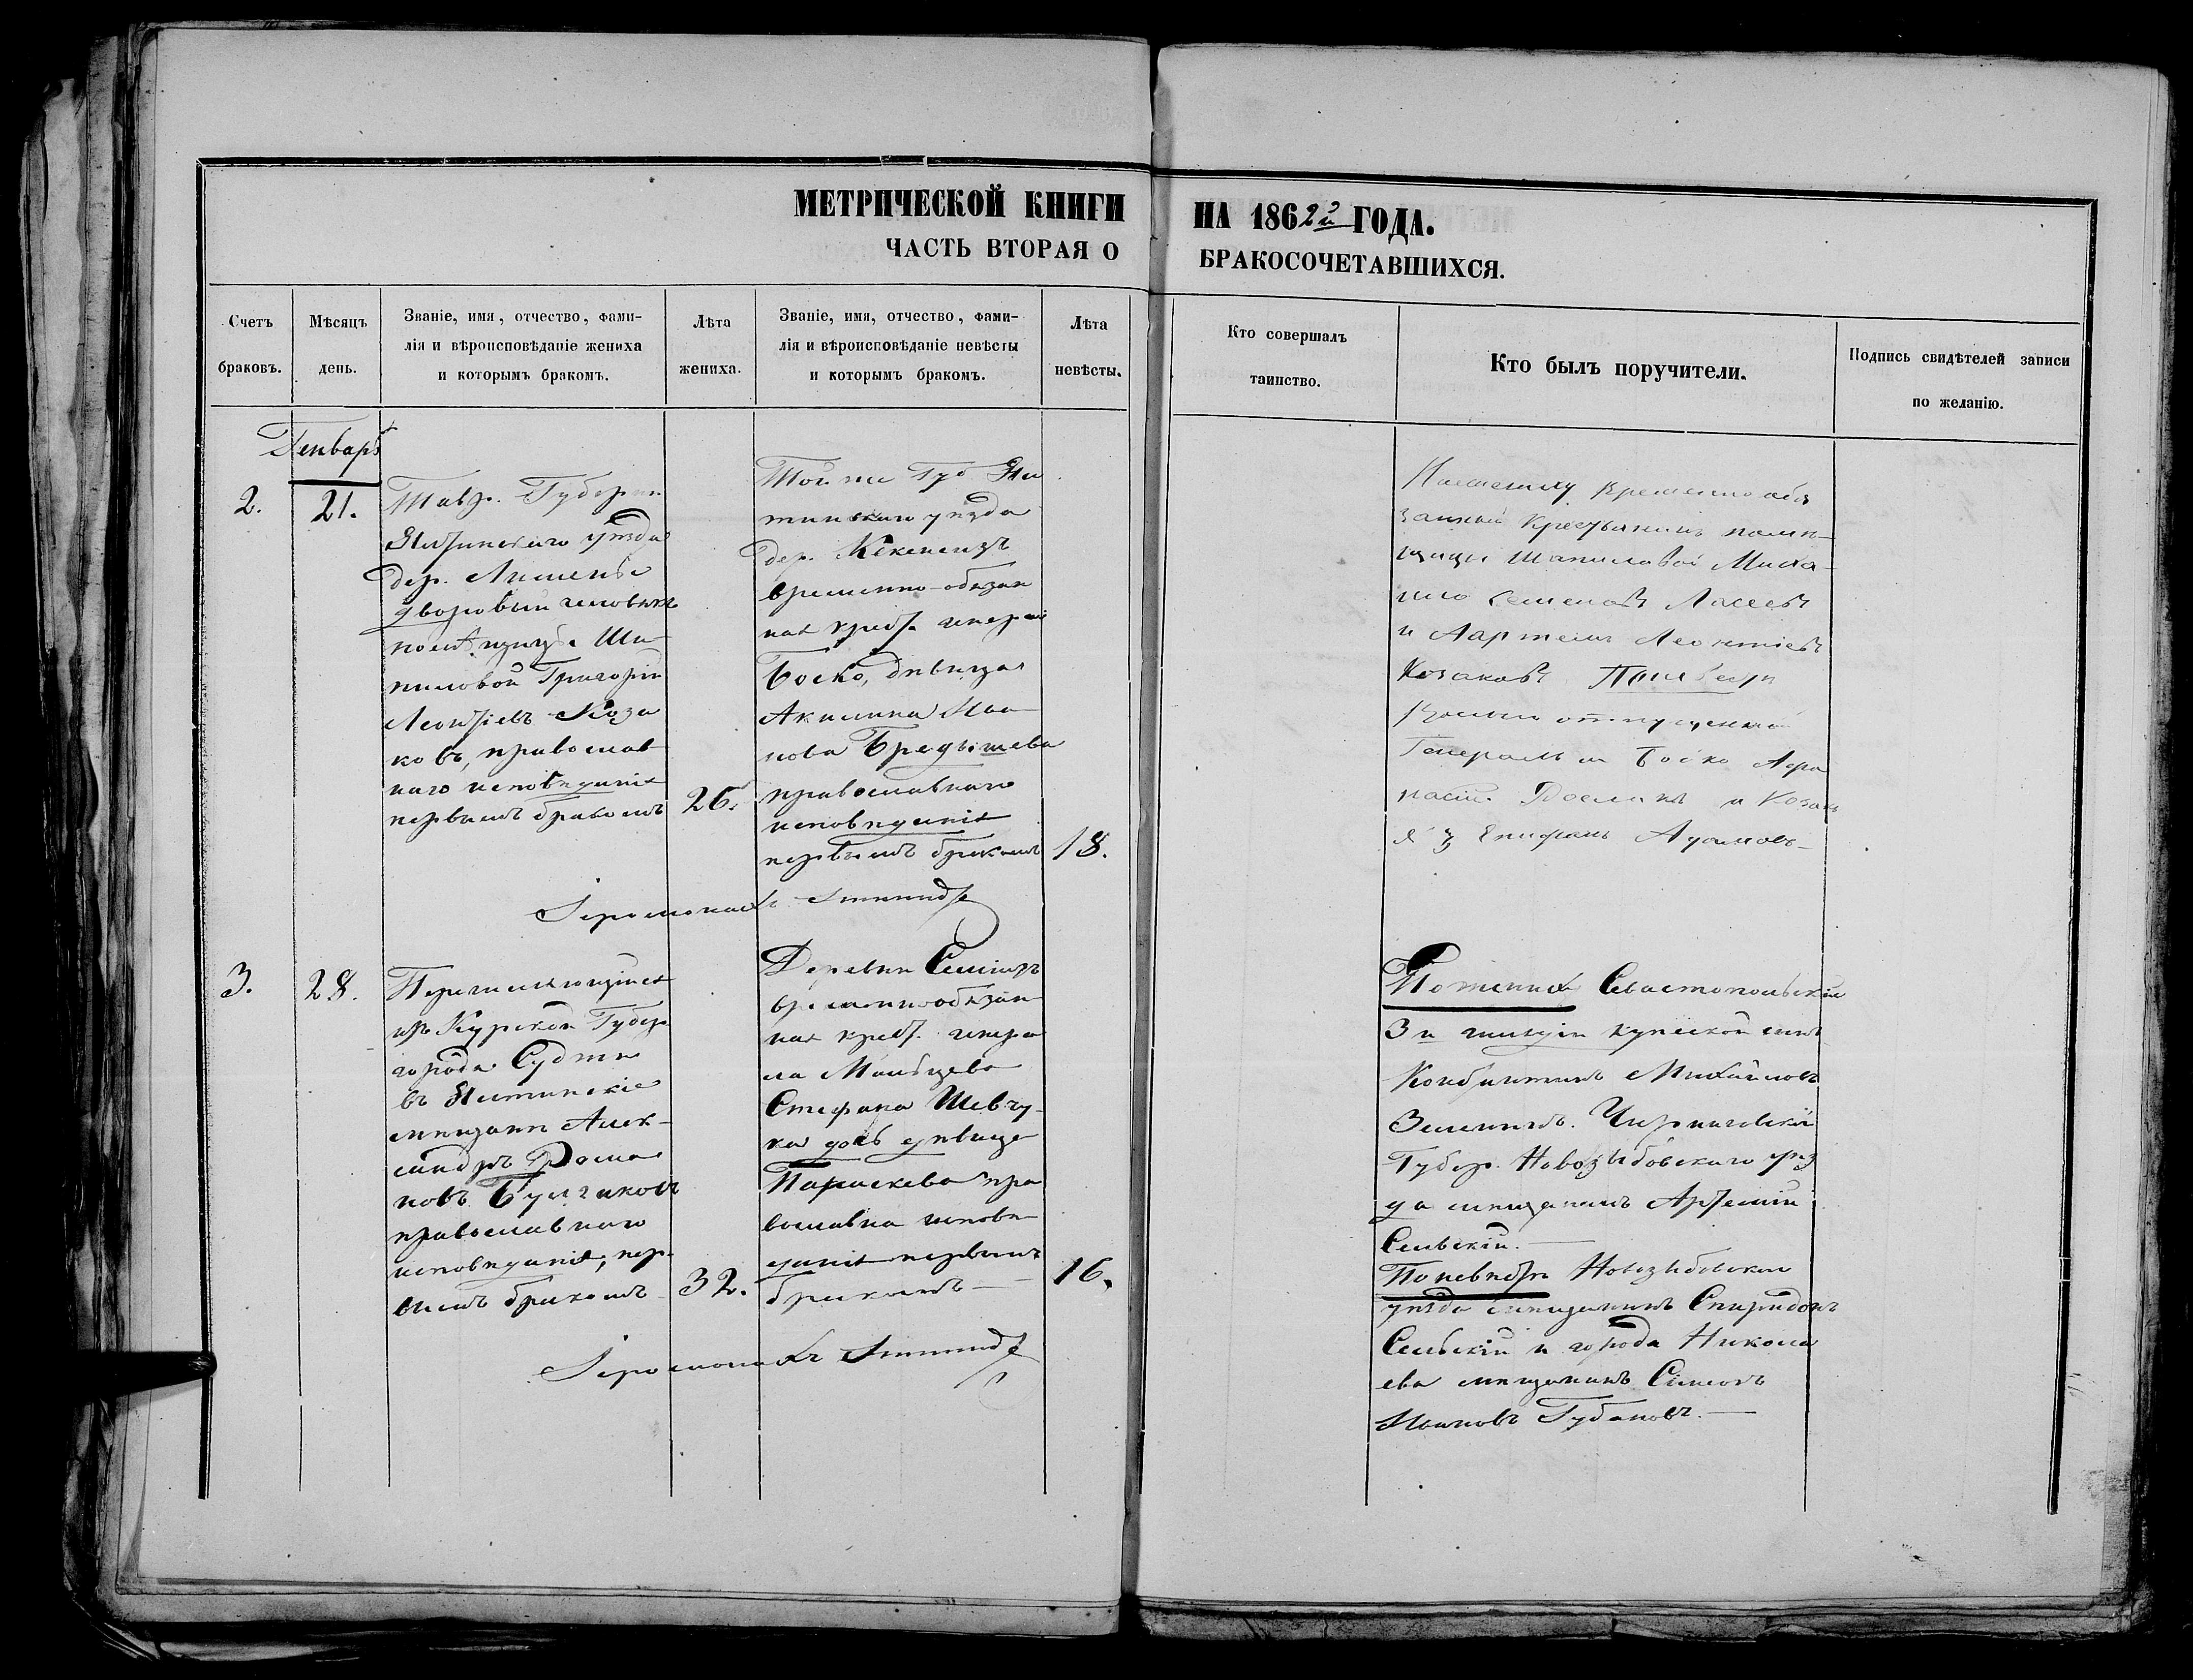 МЕТРИЧЕСКОЙ КНИГИ НА 1862й ГОДА.
ЧАСТЬ ВТОРАЯ О БРАКОСОЧЕТАВШИХСЯ.
Счетъ браковъ.
Мѣсяцъ день.
Званіе, имя, отчество, фами-
лія и вѣроисповѣданіе жениха
и которымъ бракомъ.
Лѣта жениха.
Званіе, имя, отчество, фами-
лія и вѣроисповѣданіе невѣсты
и которымъ бракомъ.
Лѣта невѣсты.
Кто совершалъ
таинство.
Кто былъ поручители.
Подпись свидѣтелей записи
по желанію.
Генварь
2.
21.
Тавр. Губерніи
Ялтинскаго уѣзда
дер. Лимены
дворовый человѣкъ
помѣщицы Ша-
пиловой Григорій
Леонтіевъ Коза
ковъ, православ
наго исповѣданія
первымъ бракомъ
26.
Той же Губ Ял
тинскаго уѣзда
дер. Кекенеизъ
временно-обязан
ная крест. генерала
Боско, дѣвица
Акилина
нова Бредышева
православнаго
исповѣданія
первымъ бракомъ
18.
Іеромонахъ
временно обя
занный крестьянинъ помѣ-
щицы Шапиловой Миха-
илъ Семеновъ
и Леонтіевъ
Козаковъ По невѣстѣ
вольно отпущенный
Генерала Боско Афа
насій и Козакъ
Епифанъ
3.
28.
Перечисляющійся
изъ Курской Губер
города Суджи
въ Ялтинскіе
мѣщане Алек-
сандръ Рома
новъ Булгаковъ
православнаго
исповѣданія, пер-
вымъ бракомъ
32.
Деревни Симеизъ
временнообязан
ная крест. генера
ла Мальцева
Стефана Шевчу-
ка дочь дѣвица
Параскева пра
вославна исповѣ
данія первымъ
бракомъ
16.
Іеромонахъ
По женихѣ Севастопольскій
3й гильдіи купеческой сынъ
Константинъ Михайловъ
Черниговской
Губер. Новозыбовскаго уѣз
да мѣщанинъ Артемій
Сельскій.
По невѣстѣ Новозыбовскаго
уѣзда мѣщанинъ Спиридонъ
Сельскій и города Никола
ева мѣщанинъ Симеонъ
Ивановъ Губановъ.